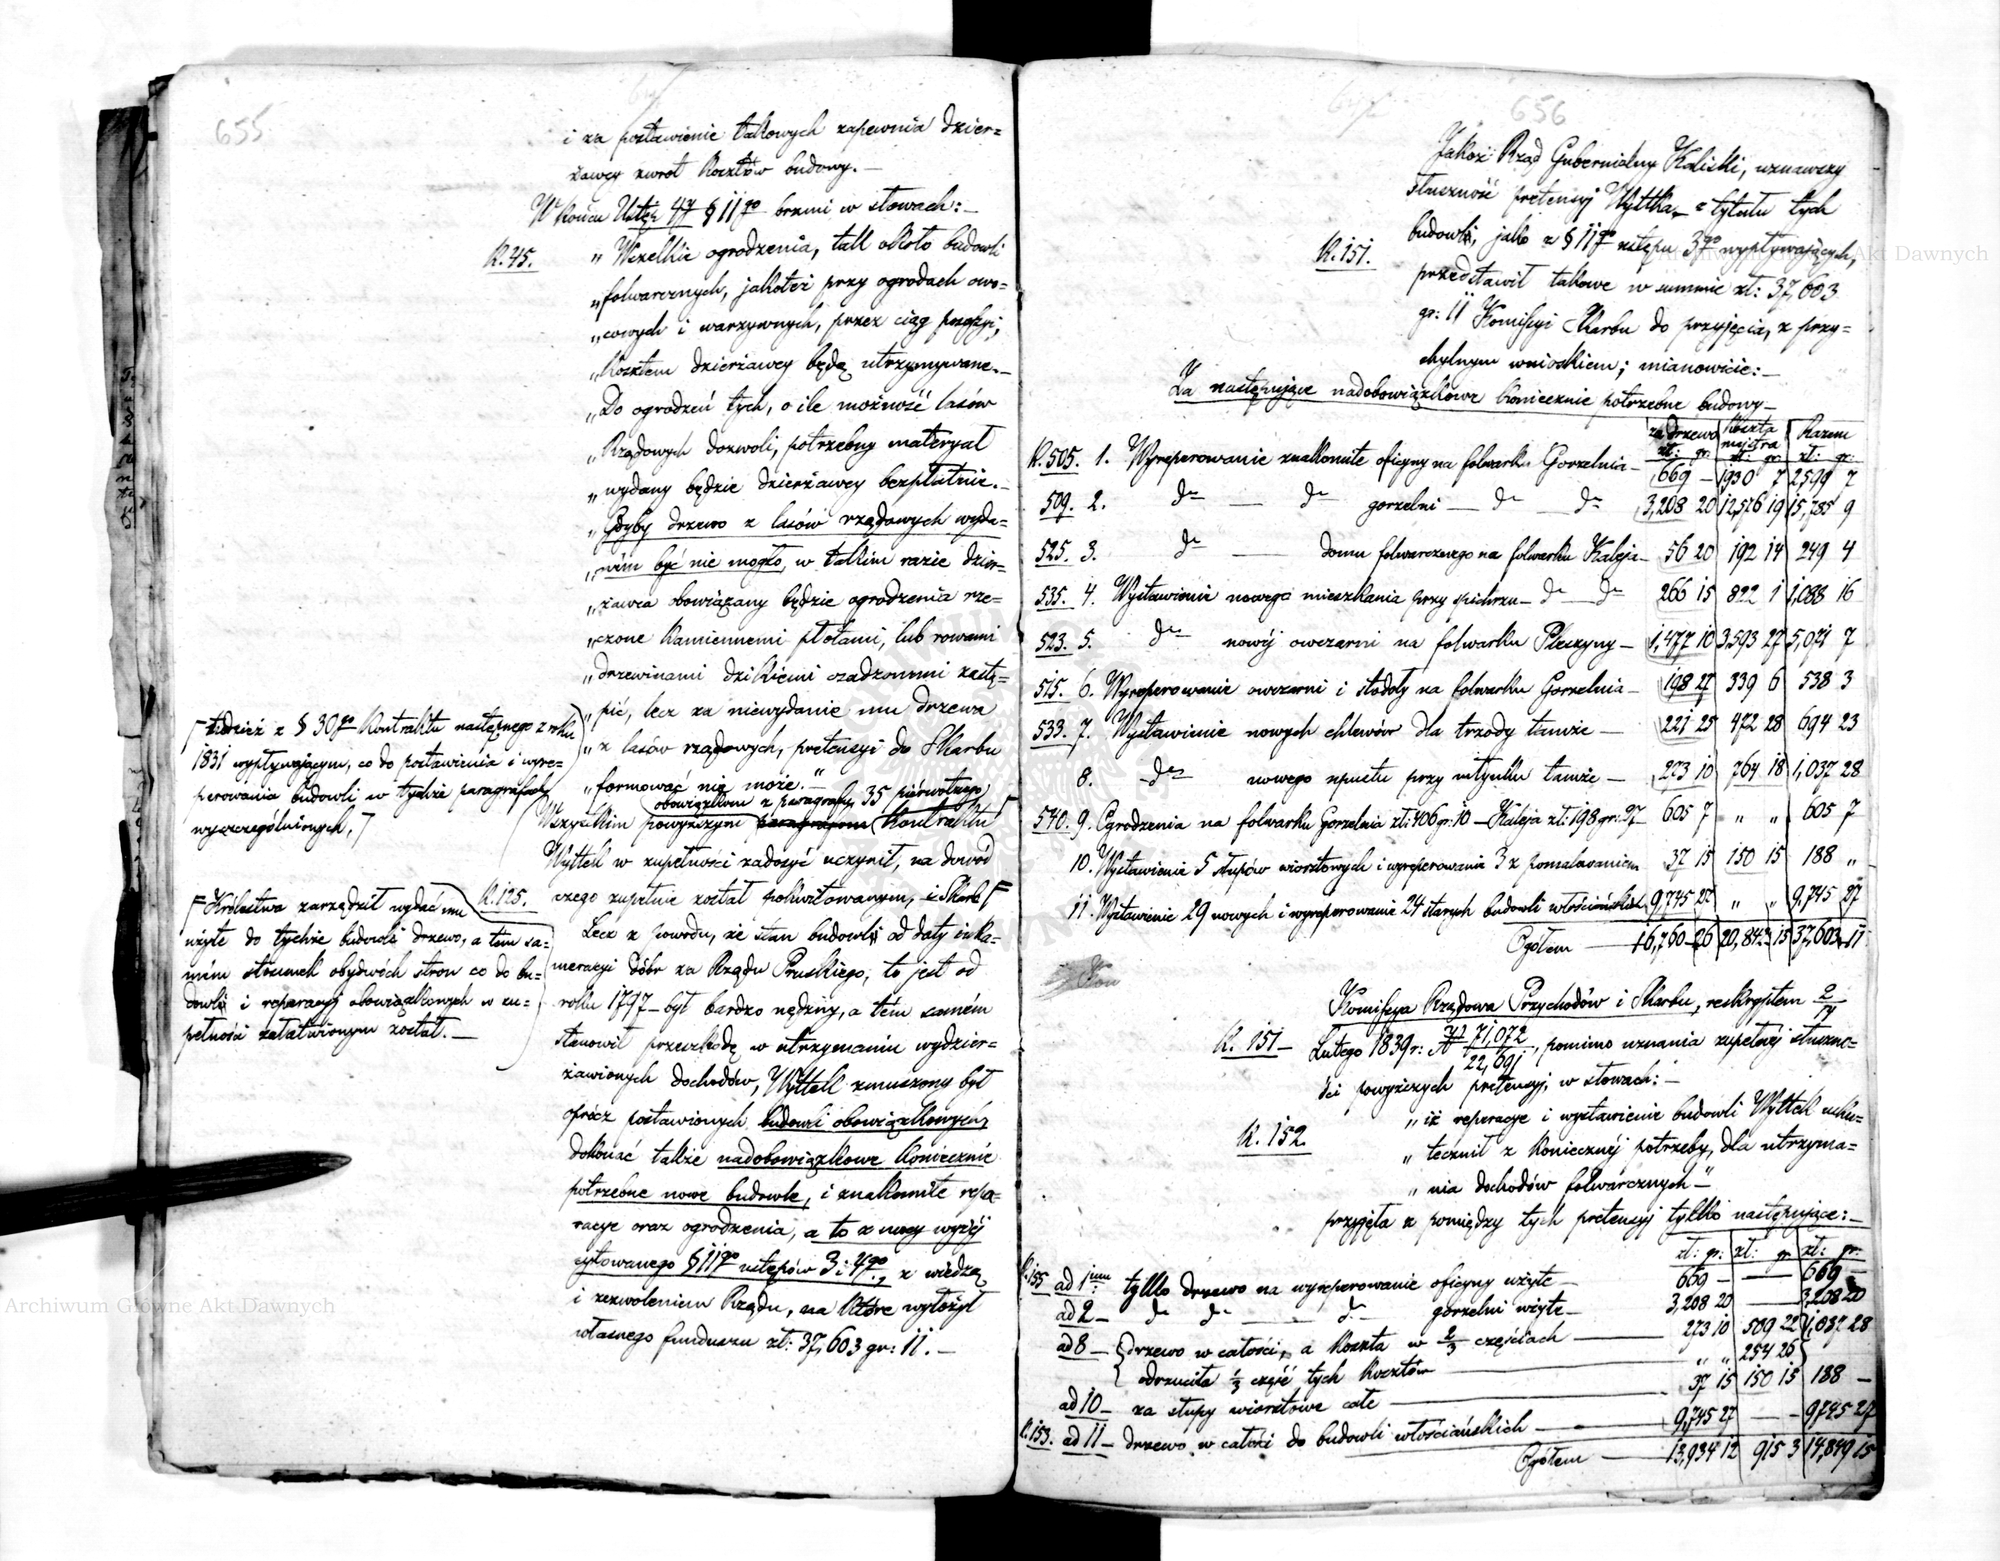 655
i za postawienie takowych zapewnia dzier=
żawcy zwrot kosztów budowy.—
W końcu Ustęp 4ty § 11go brzmi w słowach:—
K. 45.
„Wszelkie ogrodzenia, tak około budowli
„folwarcznych, jakoteż przy ogrodach owo=
„cowych i warzywnych, przez ciąg possessyi,
„kosztem dzierżawcy będą utrzymywane.—
„Do ogrodzeń tych, o ile możność lasów
„Rządowych dozwoli, potrzebny materyał
„wydany będzie dzierżawcy bezpłatnie.—
„Gdyby drzewo z lasów rządowych wyda=
„ném być nie mogło, w takim razie dzier=
„żawca obowiązany będzie ogrodzenia rze=
„czone kamiennemi płotami, lub rowami
„drzewinami dzikiemi osadzonemi zastą=
„pić, lecz za niewydanie mu drzewa
„z lasów rządowych, pretensyi do Skarbu
„formować nie może.“
obowiązkom z paragrafu 35 pierwotnego
Wszystkim powyższym paragrafom kontraktu
Wyttek w zupełności zadosyć uczynił, na dowód
czego zupełnie został pokwitowanym, i Skarb
Γ tudzież z § 30go Kontraktu następnego z roku
1831 wypływającym, co do postawienia i wyre=
perowania budowli, w tychże paragrafach
wyszczególnionych,
K. 125.
Γ Królestwa zarządził wydać mu
użyte do tychże budowli drzewo, a tem sa=
mém stosunek obydwóch stron co do bu=
dowli i reparacyj obowiązkowych w zu=
pełności załatwionym został.—
Lecz z powodu, że stan budowli od daty inka=
meracyi dóbr za Rządu Pruskiego, to jest od
roku 1797 – był bardzo nędzny, a tém samém
stanowił przeszkodę w utrzymaniu wydzier=
żawionych dochodów, Wyttek zmuszony był
oprócz postawionych budowli obowiązkowych,
dokonać także nadobowiązkowe koniecznie
potrzebne nowe budowle, i znakomite repa=
racye oraz ogrodzenia, a to z mocy wyżej
cytowanego § 11go ustępów 3 i 4go, z wiedzą
i zezwoleniem Rządu, na które wyłożył
własnego funduszu zł: 37,603 gr: 11.—
656
Jakoż Rząd Gubernialny Kaliski, uznawszy
słuszność pretensyj Wyttka z tytułu tych
budowli, jako z § 11go ustępu 3go wypływających,
K. 151.
przedstawił takowe w summie zł: 37,603
gr: 11 Komissyi Skarbu do przyjęcia, z przy=
chylnym wnioskiem; mianowicie:—
Za następujące nadobowiązkowe koniecznie potrzebne budowy—
za drzewo | Koszta majstra | Razem
zł: gr: | zł: gr: | zł: gr:
K. 505. 1. Wyreperowanie znakomite oficyny na folwarku Gorzelnia— 669 — 1930 7 2599 7
509. 2. do — do gorzelni — do — do 3,208 20 12,576 19 15,785 9
525. 3. do — domu folwarcznego na folwarku Kaleja— 56 20 192 14 249 4
535. 4. Wystawienie nowego mieszkania przy spichrzu— do — do 266 15 822 1 1,088 16
523. 5. do nowéj owczarni na folwarku Pleczyny— 1,477 10 3,593 27 5,071 7
515. 6. Wyreperowanie owczarni i stodoły na folwarku Gorzelnia— 198 27 339 6 538 3
533. 7. Wystawienie nowych chlewów dla trzody tamże— 221 25 472 28 694 23
8. do nowego upustu przy młynku tamże— 273 10 764 18 1,037 28
540. 9. Ogrodzenia na folwarku Gorzelnia zł: 406 gr: 10 — Kaleja zł: 198 gr: 27 605 7 „ „ 605 7
10. Wystawienie 5 słupów wiorstowych i wyreperowanie 3 z pomalowaniem 37 15 150 15 188 „
11. Wystawienie 29 nowych i wyreperowanie 24 starych budowli włościańskich 9,745 27 „ „ 9,745 27
Ogółem — 16,760 26 20,842 15 37,603 11
Kom
Komissya Rządowa Przychodów i Skarbu, reskryptem 2/14
K. 151— Lutego 1839 r: № 71,072/22,691, pomimo uznania zupełnéj słuszno=
ści powyższych pretensyj, w słowach:—
„iż reperacye i wystawienie budowli Wyttek usku=
K. 152.
„tecznił z koniecznéj potrzeby, dla utrzyma=
„nia dochodów folwarcznych“—
przyjęła z pomiędzy tych pretensyj tylko następujące:—
zł: gr: | zł: gr: | zł: gr:
K. 155 ad 1mum tylko drzewo na wyreperowanie oficyny użyte— 669 — — 669 —
ad 2— do do — do gorzelni użyte— 3,208 20 — 3,208 20
ad 8— drzewo w całości, a koszta w 2/3 częściach — 273 10 509 22 1,037 28
odrzuciła 1/3 część tych kosztów — „ „ 254 26
ad 10— za słupy wiorstowe całe — 37 15 150 15 188 —
K. 153. ad 11— drzewo w całości do budowli włościańskich — 9,745 27 — — 9745 27
Ogółem — 13,934 12 915 3 14,849 15
Archiwum Główne Akt Dawnych